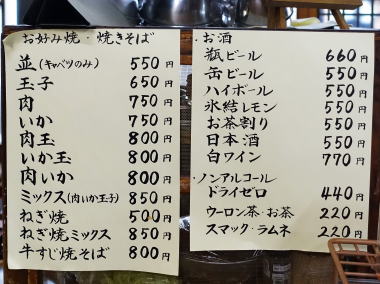 お好み焼・焼きそば
並(キャベツのみ) 550円
玉子 650円
肉 750円
いか 750円
肉玉 800円
いか玉 800円
肉いか 800円
ミックス(肉いか玉子) 850円
ねぎ焼 500円
ねぎ焼ミックス 850円
牛すじ焼そば 800円
・お酒
瓶ビール 660円
缶ビール 550円
ハイボール 550円
氷結レモン 550円
お茶割り 550円
日本酒 550円
白ワイン 770円
・ノンアルコール
ドライゼロ 440円
ウーロン茶・お茶 220円
スマック・ラムネ 220円